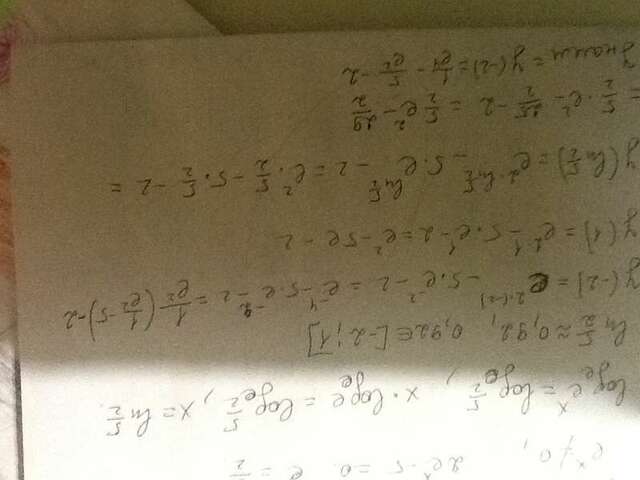 e^x ≠ 0, 2e^x - 5 = 0 e = 5/2
log_e e^x = log_e 5/2, x · log_e e = log_e 5/2, x = ln 5/2.
ln 5/2 ≈ 0,92, 0,92 ∈ [-2; 1]
y(-2) = e^(2·(-2)) - 5·e^(-2) - 2 = e^(-4) - 5·e^(-2) - 2 = 1/e^2 (1/e^2 - 5) - 2
y(1) = e^(2·1) - 5·e^1 - 2 = e^2 - 5e - 2
y(ln 5/2) = e^(2·ln 5/2) - 5·e^(ln 5/2) - 2 = e^2 · 5/2 - 5 · 5/2 - 2 =
= 5/2 · e^2 - 25/2 - 2 = 5/2 e^2 - 29/2
yнаим = y(-2) = 1/e^4 - 5/e^2 - 2